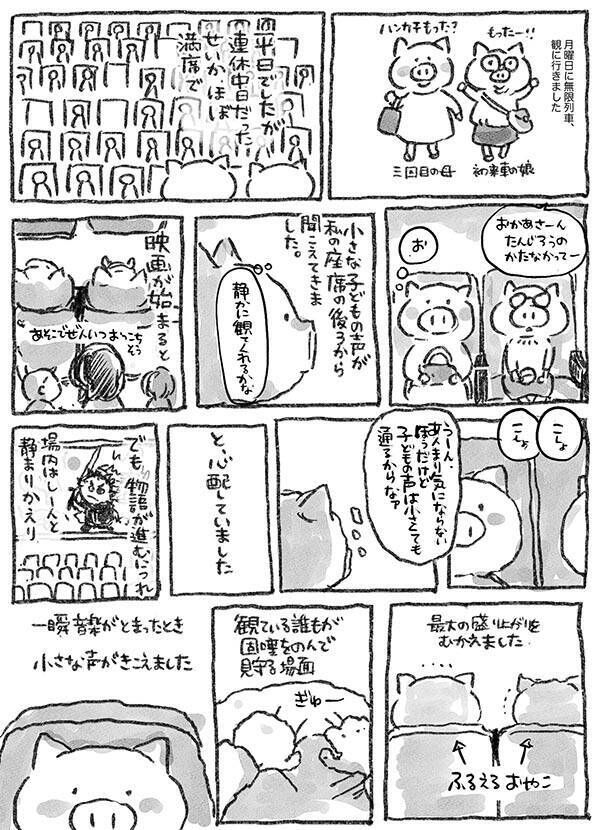 月曜日に無限列車、
観に行きました
もったー!!
ハンカチもった?
初乗車の娘
三回目の母
平日でしたが
連休中日だった
せいかほぼ
満席で
おかあさーん
たんじろうの
かたなかってー
お
小さな子どもの声が
私の座席の後ろから
聞こえてきま
した。
静かに観てくれるかな
映画が始まると
あそこでぜんいつおっこち
そう
こしょ
こしょ
うーん、
あんまり気にならない
ほうだけど
子どもの声は小さくても
通るからなァ
と、心配していました
でも、物語が進むにつれ
場内はしーんと
静まりかえり
最大の盛り上がりを
むかえました
ふるえるおやこ
観ている誰もが
固唾をのんで
見守る場面
ぎゅー
一瞬音楽がとまったとき
小さな声がきこえました